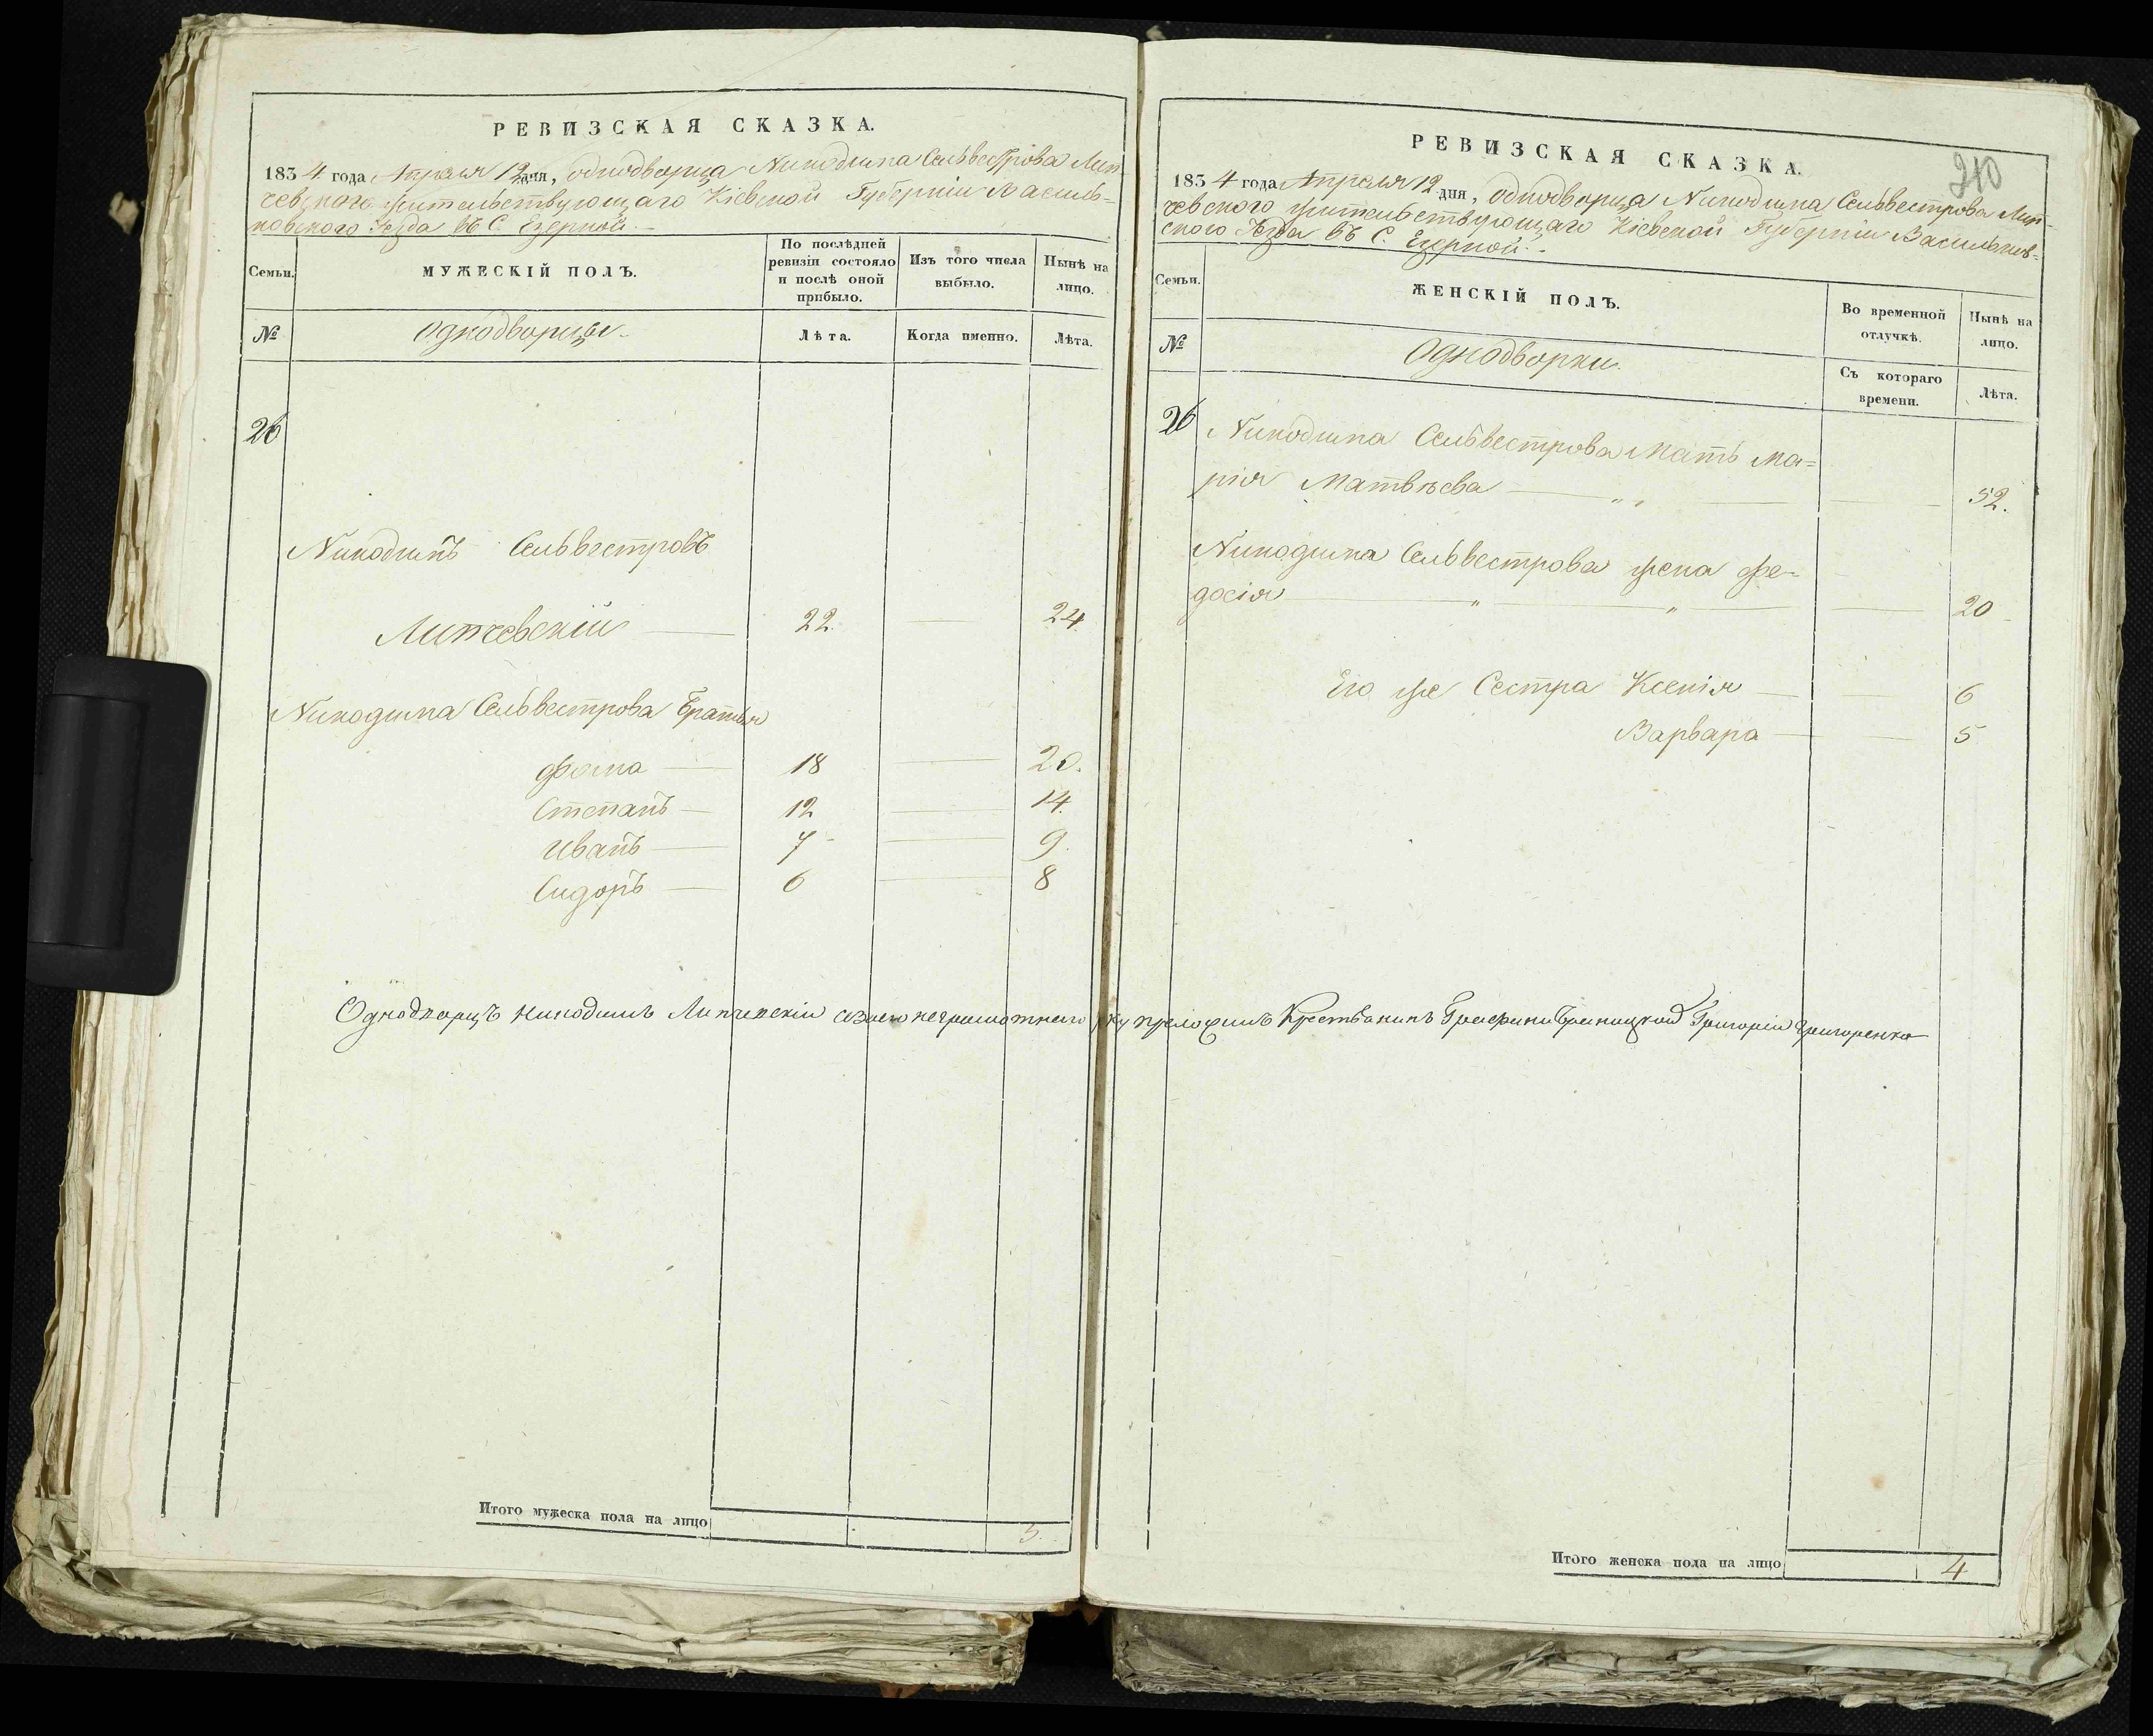 РЕВИЗСКАЯ СКАЗКА.
1834 года Апреля 12 дня, однодворца Никодима Сельвестрова Лип-
чевского жительствующаго Кіевской Губерніи Василь-
ковского Уезда въ С. Езерной.
Семьи.
МУЖЕСКІЙ ПОЛЪ.
По послѣдней ревизіи состояло и послѣ оной прибыло.
Изъ того числа выбыло.
Нынѣ на лицо.
№
Однодворцы
Лѣта.
Когда именно.
Лѣта.
26
Никодимъ Сельвестровъ
Липчевскій — 22. — 24.
Никодима Сельвестрова Братья
Фома — 18 — 20.
Степанъ — 12 — 14.
Иванъ — 7 — 9.
Сидоръ — 6 — 8
Итого мужеска пола на лицо 5.
210
РЕВИЗСКАЯ СКАЗКА.
1834 года Апреля 12 дня, однодворца Никодима Сельвестрова Лип-
чевского жительствующаго Кіевской Губерніи Васильков-
ского Уезда въ С. Езерной.
Семьи.
ЖЕНСКІЙ ПОЛЪ.
Во временной отлучкѣ.
Нынѣ на лицо.
№
Однодворки.
Съ котораго времени.
Лѣта.
26
Никодима Сельвестрова Мать Ма=
рія Матвѣева — „ — — 52.
Никодима Сельвестрова жена Фе-
досія — „ — „ — — 20
Его же Сестра Ксенія — — 6
Варвара — — 5
Однодворцъ Никодимъ Липчевскій авместо неграмотнаго руку приложилъ Крестьянинъ Графини Браницкой Григорій Григоренко
Итого женска пола на лицо 4